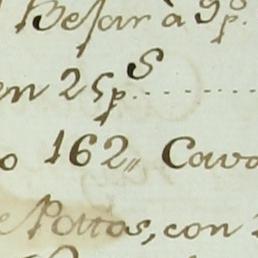 Bejar à 9p.s
en 25p.s
o 162,, Cava
e Pottos, con